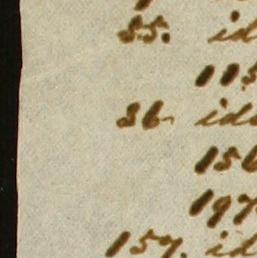 35. id
115
36- id
156
197
157. id